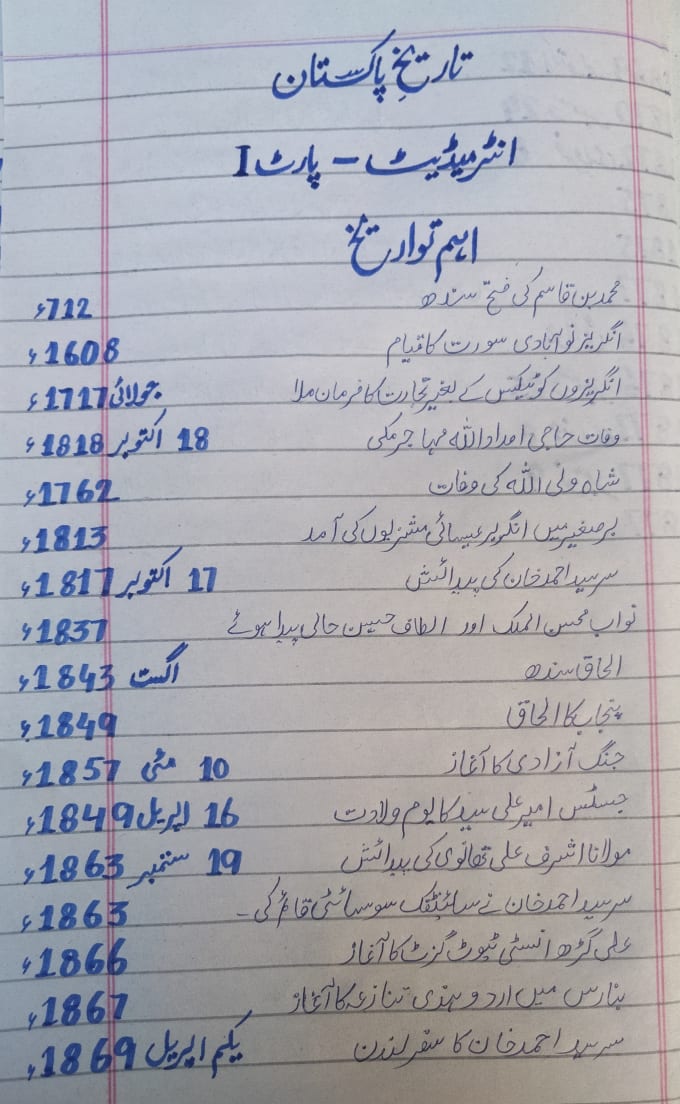 تاریخِ پاکستان
انٹرمیڈیٹ - پارٹ I
اہم تواریخ
محمد بن قاسم کی فتح سندھ 712ء
انگریز نوآبادی سورت کا قیام 1608ء
انگریزوں کو ٹیکس کے بغیر تجارت کا فرمان ملا جولائی 1717ء
وفات حاجی امداد اللہ مہاجر مکی 18 اکتوبر 1818ء
شاہ ولی اللہ کی وفات 1762ء
برصغیر میں انگریز عیسائی مشنریوں کی آمد 1813ء
سرسید احمد خان کی پیدائش 17 اکتوبر 1817ء
نواب محسن الملک اور الطاف حسین حالی پیدا ہوئے 1837ء
الحاق سندھ اگست 1843ء
پنجاب کا الحاق 1849ء
جنگ آزادی کا آغاز 10 مئی 1857ء
جسٹس امیر علی سید کا یوم ولادت 16 اپریل 1849ء
مولانا اشرف علی تھانوی کی پیدائش 19 ستمبر 1863ء
سرسید احمد خان نے سائنٹیفک سوسائٹی قائم کی۔ 1863ء
علی گڑھ انسٹی ٹیوٹ گزٹ کا آغاز 1866ء
بنارس میں اردو ہندی تنازعہ کا آغاز 1867ء
سرسید احمد خان کا سفر لندن یکم اپریل 1869ء